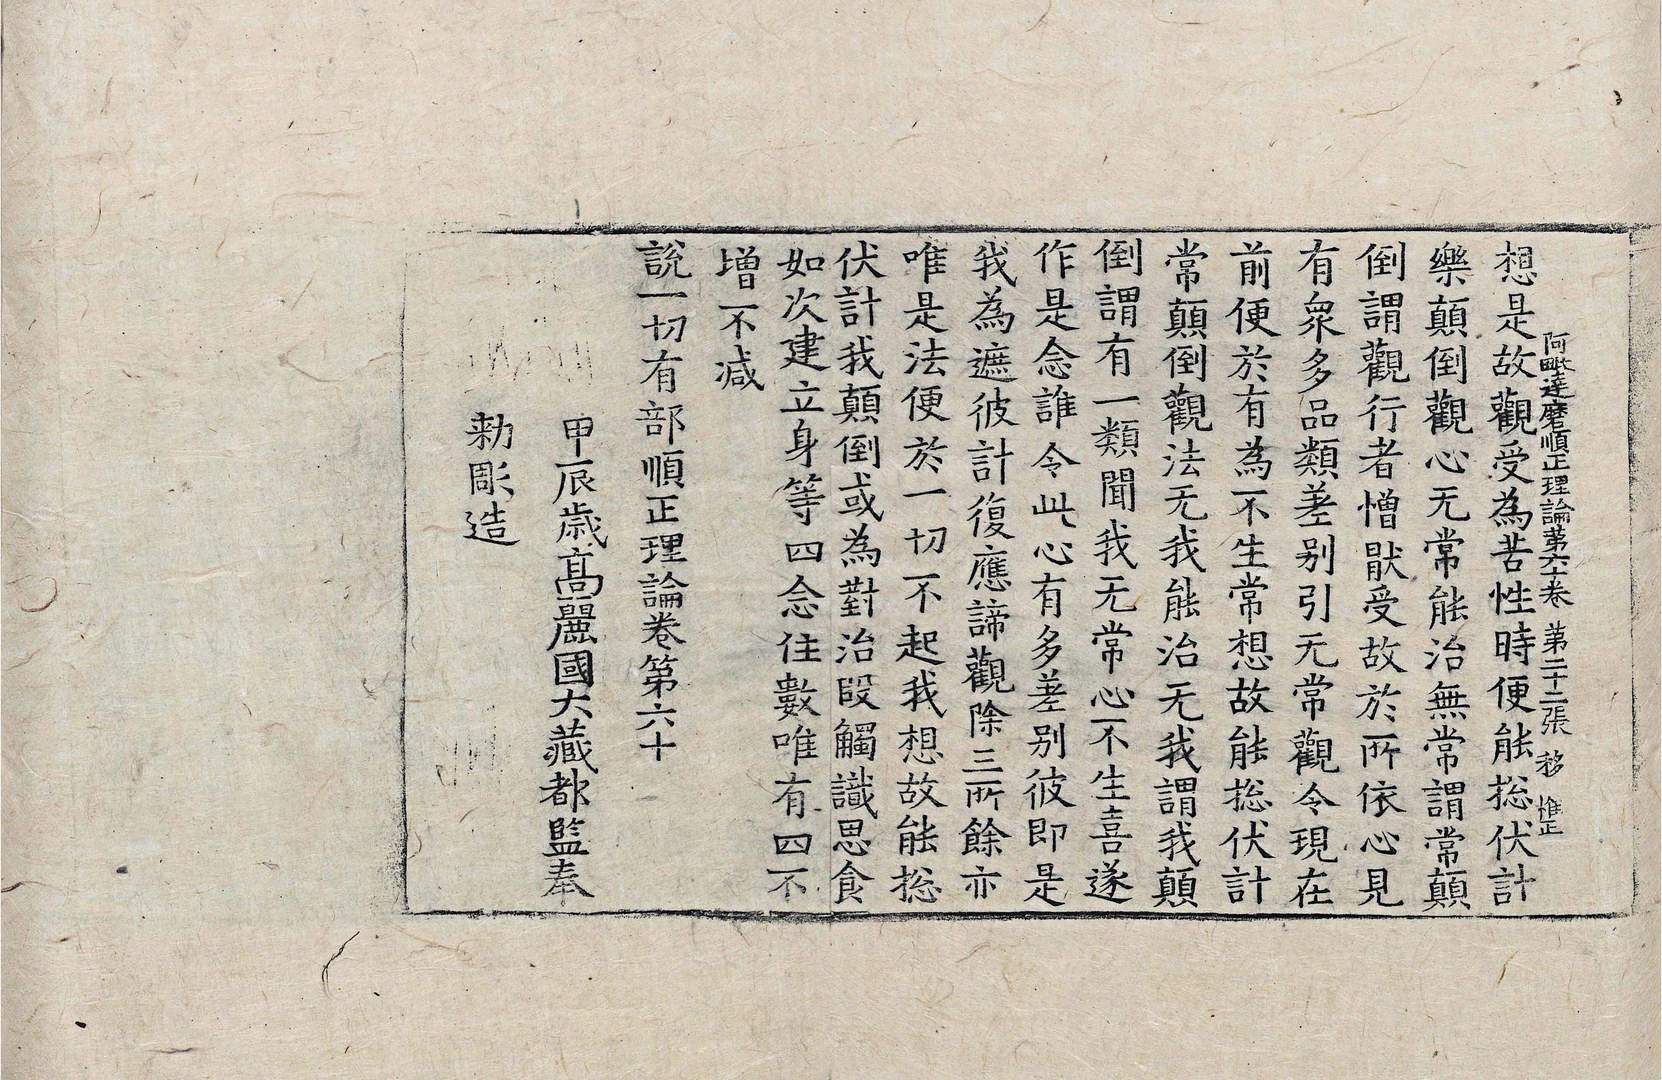 阿毗達磨順正理論第六十卷 第二十二張 移 惟正
想是故觀受為苦性時便能捴伏計
樂顛倒觀心无常能治無常謂常顛
倒謂觀行者憎猒受故於所依心見
有衆多品類差别引无常觀令現在
前便於有為不生常想故能捴伏計
常顛倒觀法无我能治无我謂我顛
倒謂有一類聞我无常心不生喜遂
作是念誰令此心有多差别彼即是
我為遮彼計復應諦觀除三所餘亦
唯是法便於一切不起我想故能捴
伏計我顛倒或為對治段觸識思食
如次建立身等四念住數唯有四不
增不減
說一切有部順正理論卷第六十
甲辰歲高麗國大藏都監奉
勑彫造